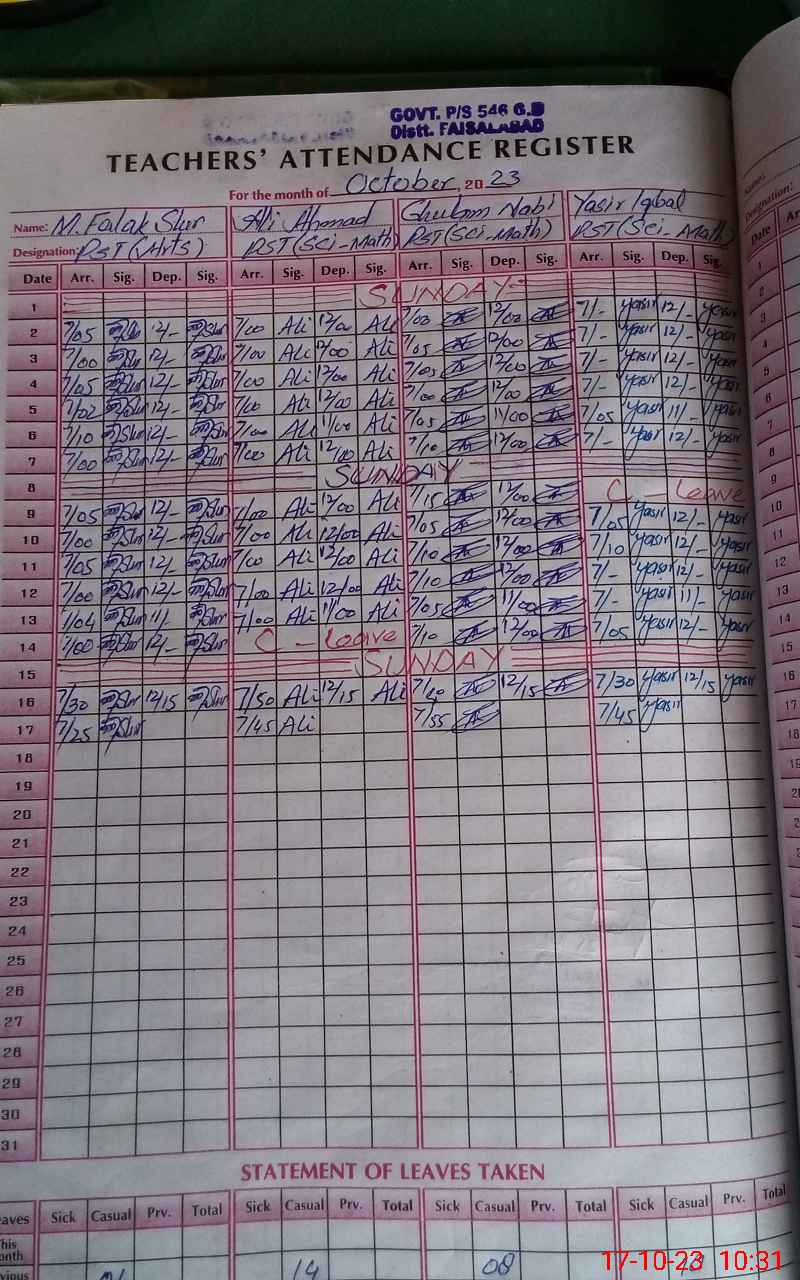 GOVT. P/S 546 G.B
Distt. FAISALABAD
TEACHERS' ATTENDANCE REGISTER
For the month of October, 2023
Name: M. Falak Sher Ali Ahmad Ghulam Nabi Yasir Iqbal
Designation: PST (Arts) PST (Sci-Math) PST (Sci-Math) PST (Sci-Math)
Date Arr. Sig. Dep. Sig. Arr. Sig. Dep. Sig. Arr. Sig. Dep. Sig. Arr. Sig. Dep. Sig.
1 SUNDAY
2 7/05 12/- 7/00 Ali 12/00 Ali 7/00 12/00 7/- Yasir 12/- Yasir
3 7/00 12/- 7/00 Ali 12/00 Ali 7/05 12/00 7/- Yasir 12/- Yasir
4 7/05 12/- 7/00 Ali 12/00 Ali 7/05 12/00 7/- Yasir 12/- Yasir
5 7/02 12/- 7/00 Ali 12/00 Ali 7/00 12/00 7/- Yasir 12/- Yasir
6 7/10 12/- 7/00 Ali 11/00 Ali 7/05 11/00 7/05 Yasir 11/- Yasir
7 7/00 12/- 7/00 Ali 12/00 Ali 7/10 12/00 7/- Yasir 12/- Yasir
8 SUNDAY
9 7/05 12/- 7/00 Ali 12/00 Ali 7/15 12/00 C - Leave
10 7/00 12/- 7/00 Ali 12/00 Ali 7/05 12/00 7/05 Yasir 12/- Yasir
11 7/05 12/- 7/00 Ali 12/00 Ali 7/10 12/00 7/10 Yasir 12/- Yasir
12 7/00 12/- 7/00 Ali 12/00 Ali 7/10 12/00 7/- Yasir 12/- Yasir
13 7/04 11/- 7/00 Ali 11/00 Ali 7/05 11/00 7/- Yasir 11/- Yasir
14 7/00 12/- C - Leave 7/10 12/00 7/05 Yasir 12/- Yasir
15 SUNDAY
16 7/30 12/15 7/50 Ali 12/15 Ali 12/15 7/30 Yasir 12/15 Yasir
17 7/25 7/45 Ali 7/55 7/45 Yasir
18
19
20
21
22
23
24
25
26
27
28
29
30
31
STATEMENT OF LEAVES TAKEN
Sick Casual Prv. Total Sick Casual Prv. Total Sick Casual Prv. Total Sick Casual Prv. Total
14 08
17-10-23 10:31